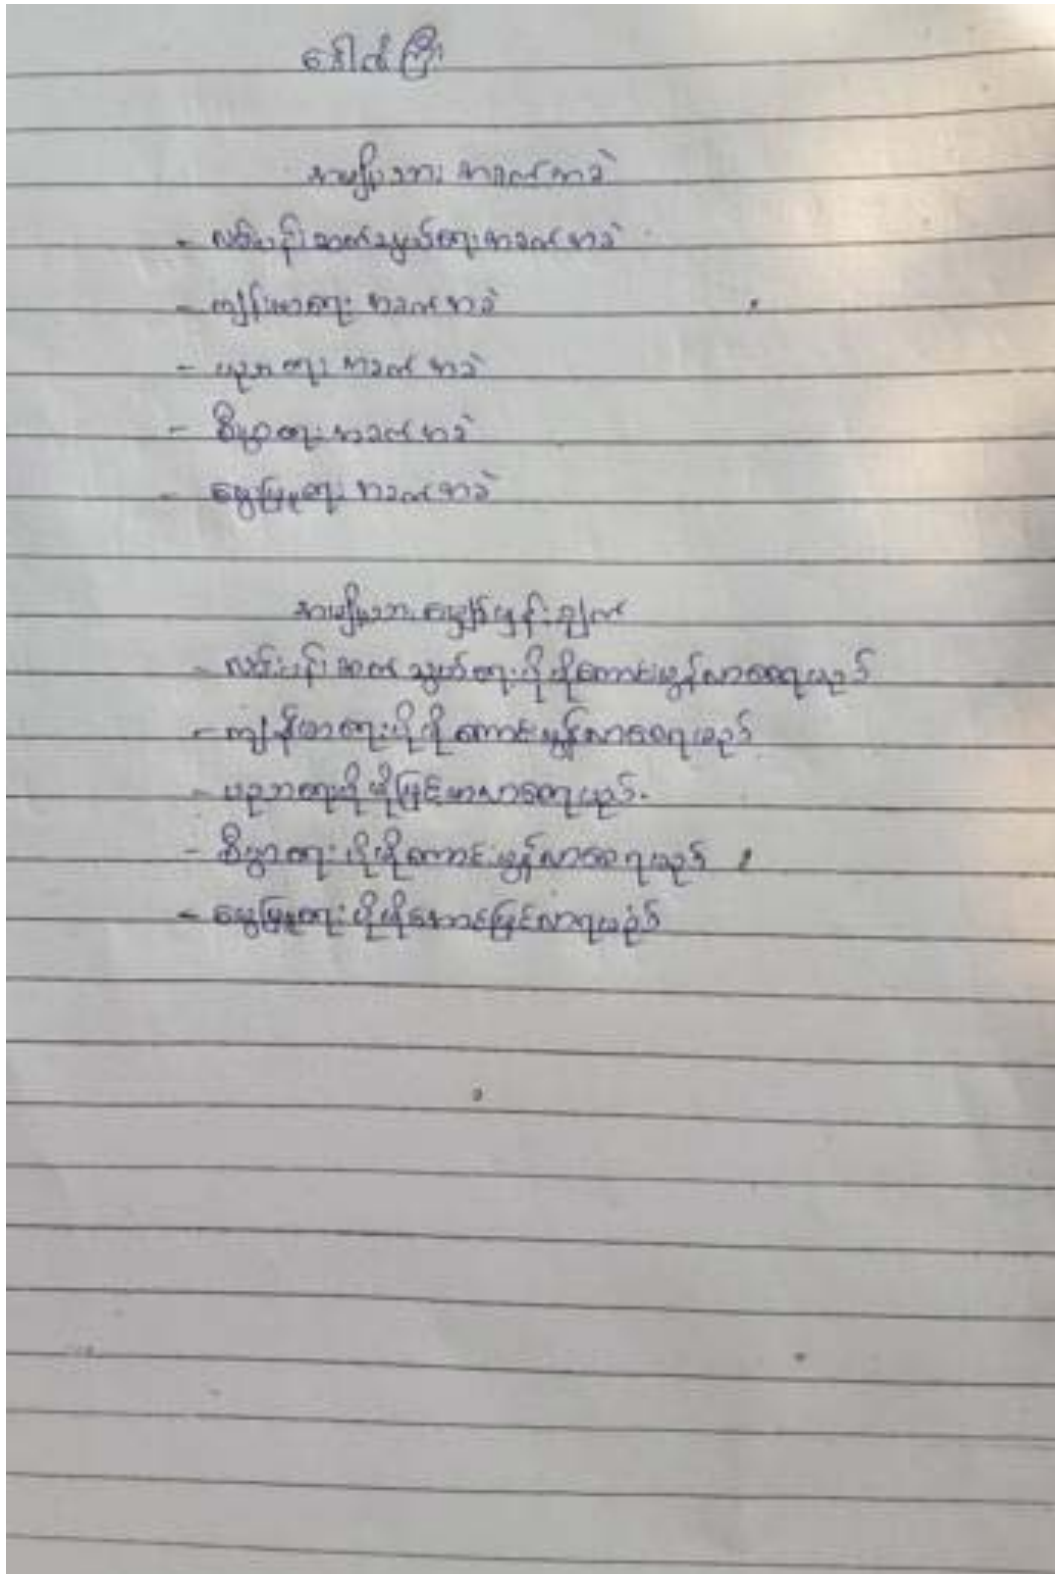 ဒေါက်ကြီး
အမျိုးသား အခက်အခဲ
- လမ်းပန်းဆက်သွယ်ရေးအခက်အခဲ
- ကျန်းမာရေး အခက်အခဲ
- ပညာရေး အခက်အခဲ
- စီးပွားရေး အခက်အခဲ
- မွေးမြူရေး အခက်အခဲ
အမျိုးသား မျှော်မှန်းချက်
- လမ်းပန်းဆက်သွယ်ရေးပိုမိုကောင်းမွန်လာစေရမည်
- ကျန်းမာရေးပိုမိုကောင်းမွန်လာစေရမည်
- ပညာရေးပိုမိုမြင့်မားလာစေရမည်.
- စီးပွားရေးပိုမိုကောင်းမွန်လာစေရမည်
- မွေးမြူရေးပိုမို